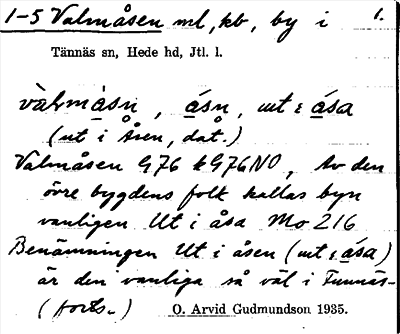 1-5 Valmåsen ml, kb, by i 1.
Tännäs sn, Hede hd, Jtl. l.
vàlmàsn, ásn, ut ɩ ása
(ut i Åsen, dat.)
Valmåsen G76 k G76NO, Av den
övre bygdens folk kallas byn
vanligen Ut i åsa Mo 216
Benämningen Ut i åsen (ut ɩ ása)
är den vanliga så väl i Funnäs-
(forts.) O. Arvid Gudmundson 1935.